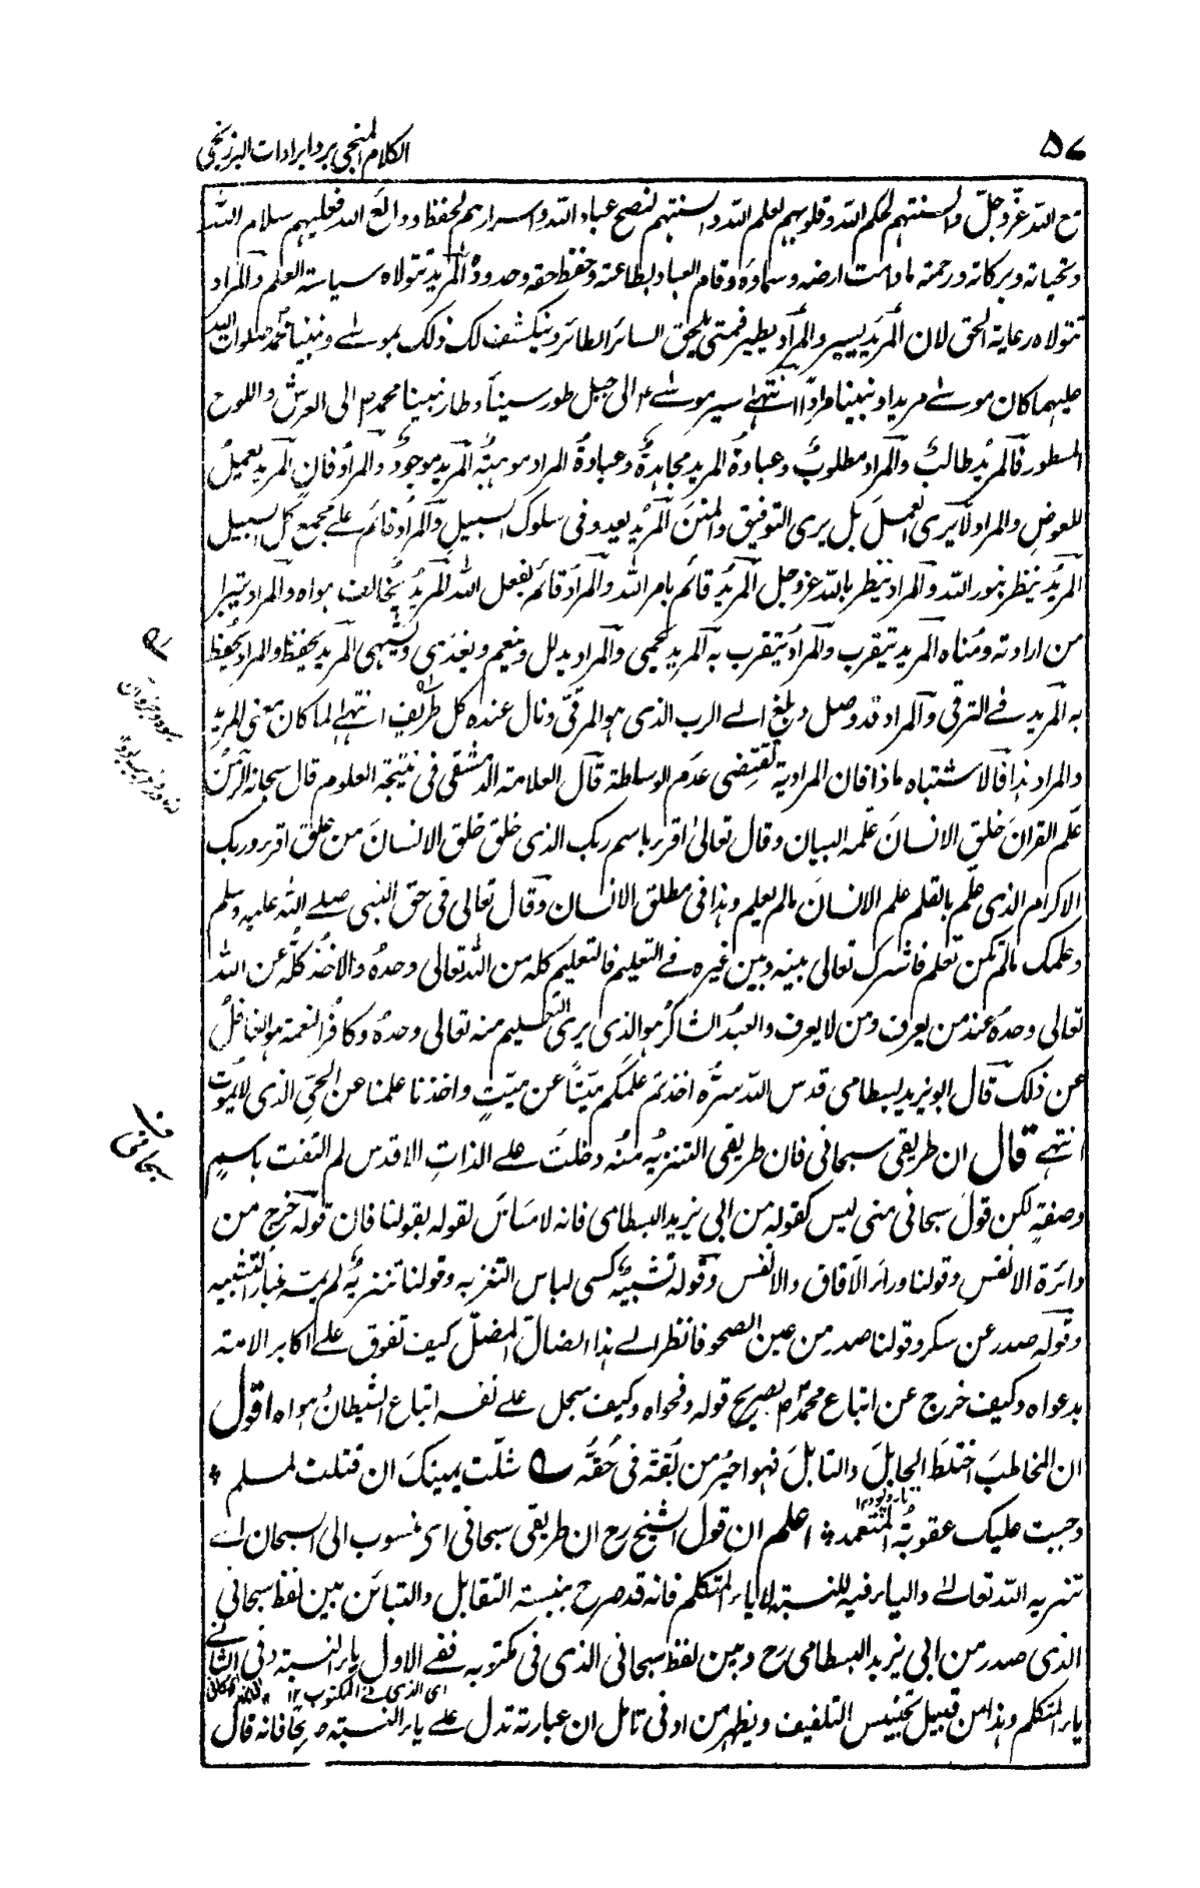 ٥٧
الكلام المنجى برد ايرادات البرزنجى
مع الله عز وجل والسنتهم لحكم الله وقلوبهم لعلم الله والسنتهم لنصح عباد الله واسرارهم لحفظ ودائع الله فعليهم سلام الله
وتحياته وبركاته ورحمته ما دامت ارضه وسماؤه وقام العباد بطاعته وحفظ حقه وحدوده المريد تتولاه سياسة العلم والمراد
تتولاه رعاية الحق لان المريد يسير والمراد يطير فمتى يلحق السائر الطائر وينكشف لك ذلك بموسى ونبينا محمد صلوات الله
عليهما كان موسى مريدا ونبينا مرادا انتهى سير موسى ع الى جبل طور سينا وطار نبينا محمد ص الى العرش واللوح
المسطور فالمريد طالب والمراد مطلوب وعبادة المريد مجاهدة وعبادة المراد موهبة المريد موجود والمراد فان المريد يعمل
للعوض والمراد لا يرى العمل بل يرى التوفيق والمنن المريد يعدو فى سلوك السبيل والمراد قائم على مجمع كل السبيل
المريد ينظر بنور الله والمراد ينظر بالله عز وجل المريد قائم بامر الله والمراد قائم بفعل الله المريد يخالف هواه والمراد يتبرا
من ارادته ومناه المريد يتقرب والمراد يتقرب به المريد يحمى والمراد يدلل وينعم ويغذى ويشهى المريد يحفظ والمراد يحفظ
به المريد فى الترقى والمراد قد وصل وبلغ الى الرب الذى هو المرقى ونال عنده كل طريف انتهى لما كان معنى المريد
والمراد هذا فالاشتباه ماذا فان المرادية تقتضى عدم الوساطة قال العلامة الدمشقى فى نتيجة العلوم قال سبحانه الرحمن
علم القران خلق الانسان علمه البيان وقال تعالى اقرء باسم ربك الذى خلق خلق الانسان من علق اقرء وربك
الاكرم الذى علم بالقلم علم الانسان مالم يعلم وهذا فى مطلق الانسان وقال تعالى فى حق النبى صلى الله عليه وسلم
وعلمك مالم تكن تعلم فاشرك تعالى بينه وبين غيره فى التعليم فالتعليم كله من الله تعالى وحده والاخذ كله عن الله
تعالى وحده عند من يعرف ومن لا يعرف والعبد الشاكر هو الذى يرى التعليم منه تعالى وحده وكافر النعمة هو الغافل
عن ذلك قال ابو يزيد البسطامى قدس الله سره اخذتم علمكم ميتا عن ميت واخذنا علمنا عن الحى الذى لا يموت
انتهى قال ان طريقى سبحانى فان طريقى التنزيه منه دخلت على الذات الاقدس لم التفت باسم
وصفة لكن قول سبحانى منى ليس كقوله من ابى يزيد البسطامى فانه لا مساس لقوله بقولنا فان قوله خرج من
دائرة الانفس وقولنا وراء الآفاق والانفس وقوله تشبيه كسى لباس التنزيه وقولنا تنزيه لم يمسه غبار التشبيه
وقوله صدر عن سكر وقولنا صدر من عين الصحو فانظر الى هذا الضال المضل كيف تفوق على اكابر الامة
بدعواه وكيف خرج عن اتباع محمد ص بصريح قوله وفحواه وكيف سجل على نفسه اتباع الشيطان هواه اقول
ان المخاطب اختلط الحابل والنابل فهو احير من بقة فى حقة شلت يمينك ان قتلت لمسلم
وجبت عليك عقوبة المتعمد اعلم ان قول الشيخ رح ان طريقى سبحانى اى منسوب الى السبحان اى
تنزيه الله تعالى والياء فيه للنسبة لا ياء المتكلم فانه قد صرح بنسبة التقابل والتبائن بين لفظ سبحانى
الذى صدر من ابى يزيد البسطامى رح وبين لفظ سبحانى الذى فى مكتوبه ففى الاول ياء النسبة وفى الثانى
اى الذى فى المكتوب ١٢
ياء المتكلم وهذا من قبيل تجنيس التلفيف ويظهر من ادنى تامل ان عبارته تدل على ياء النسبة صريحا فانه قال
سبحانى